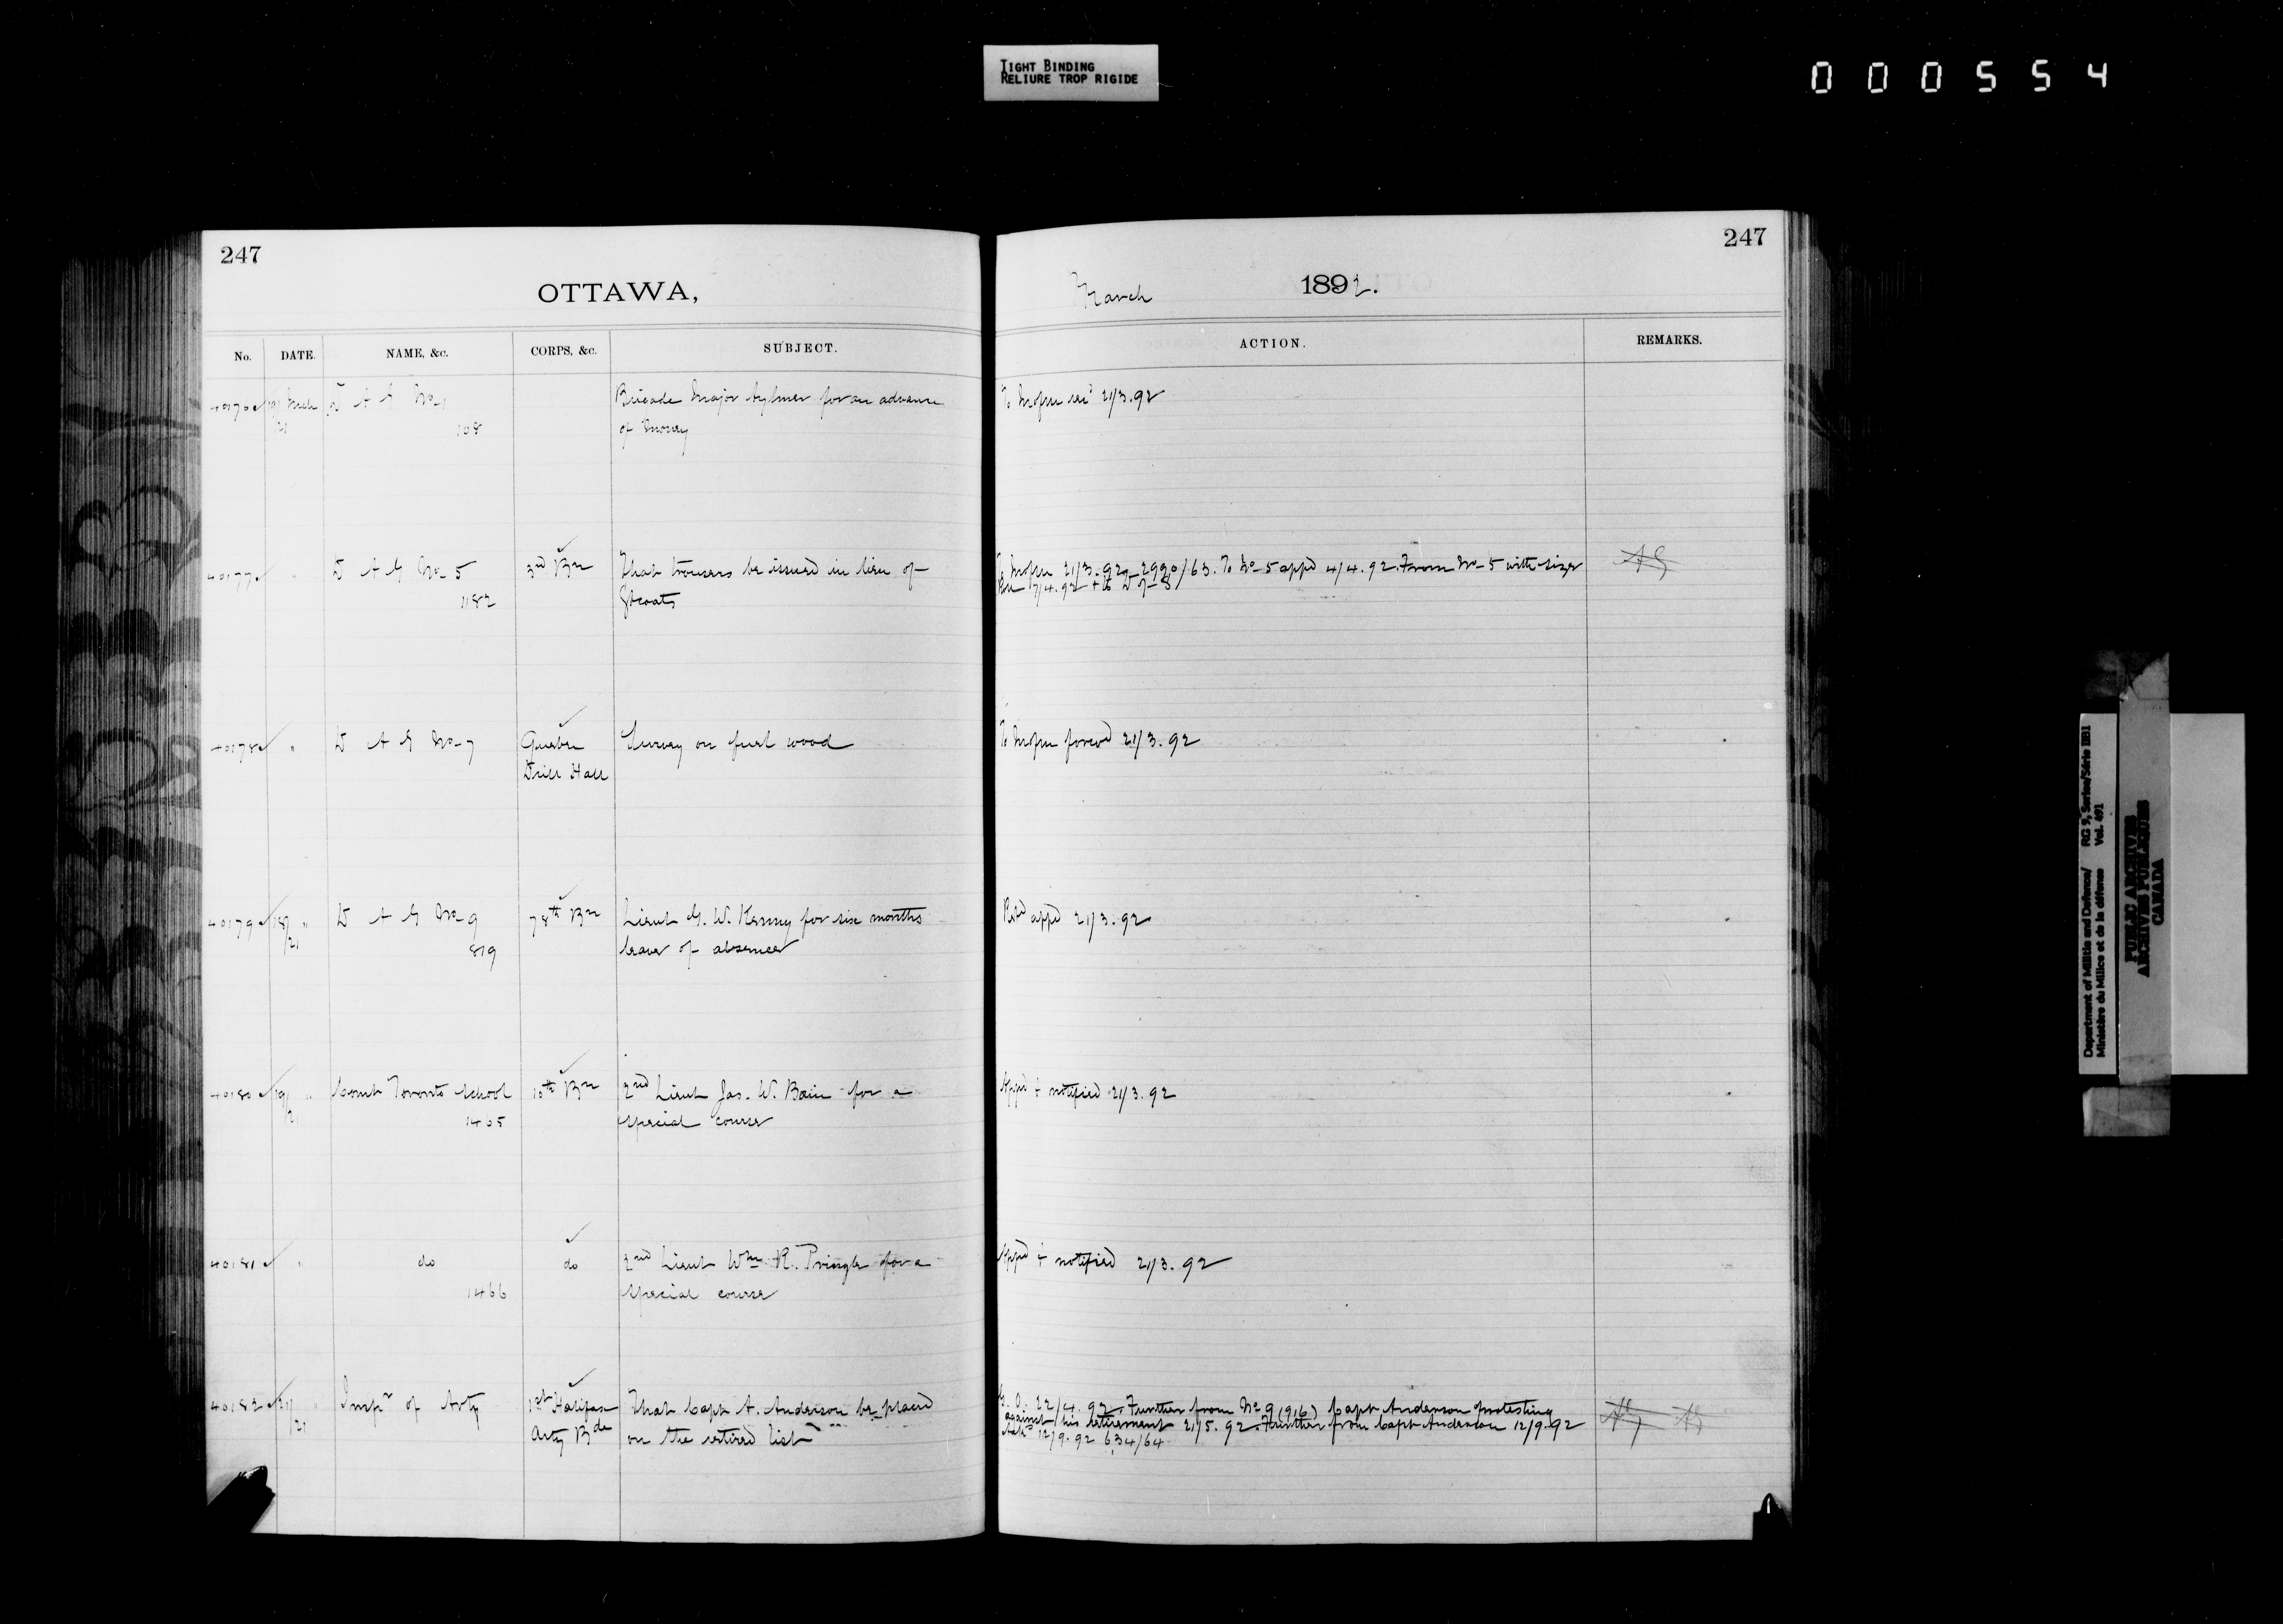 TIGHT BINDING
RELIURE TROP RIGIDE
000554
247
OTTAWA,
No. DATE. NAME, &c. CORPS, &c. SUBJECT.
D A G No 1 Brigade Major Aylmer for an advance
21 108 of money
40177 " D A G No 5 3rd Bn That trousers be issued in lieu of
1182 Gtcoats
40178 " D A G No 7 Quebec Survey on fuel wood
Drill Hall
40179 18/ " D A G No 9 78th Bn Lieut G. W. Kenny for six months
21 819 leave of absence
40180 19/ " Comt Toronto School 10th Bn 2nd Lieut Jas. W. Bain for a
21 1405 special course
40181 " do do 2nd Lieut Wm R. Pringle for a
1466 special course
40182 21/ " Inspr of Arty 1st Halifax That Capt A. Anderson be placed
21 Arty Bde on the retired list
247
March 1892.
ACTION. REMARKS.
21/3.92
21/3.92 2990/63. To No 5 appd 4/4.92. From No 5 with sizes
7/4.92 + to D of S
forwd 21/3.92
appd 21/3.92
Appd & notified 21/3.92
Appd & notified 21/3.92
G.O. 22/4.92. Further from No 9 (916) Capt Anderson protesting
against his retirement 21/5.92. Further from Capt Anderson 12/9.92
12/9.92 634/64
Department of Militia and Defence/ RG 9, Series/Série IIB1
Ministère du Milice et de la défense Vol. 491
PUBLIC ARCHIVES
ARCHIVES PUBLIQUES
CANADA